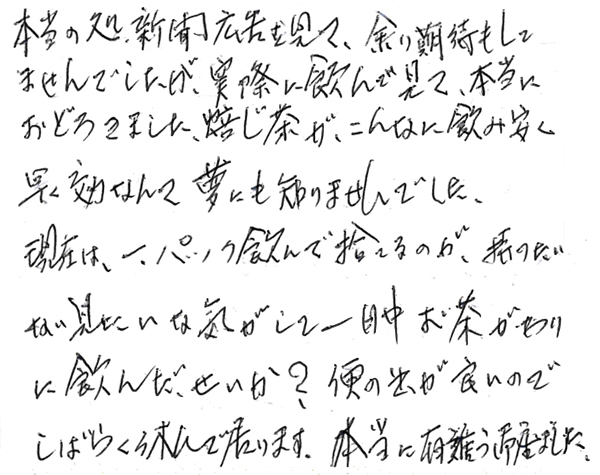 本当の処、新聞広告を見て、余り期待もして
ませんでしたが、実際に飲んで見て、本当に
おどろきました、焙じ茶が、こんなに飲み安く
早く効なんて夢にも知りませんでした、
現在は、一、パック飲んで捨てるのが、持つたい
ない見たいな気がして一日中お茶がわり
に飲んだ、せいか?便の出が良いので
しばらく休んで居ります。本当に有難う御座ました、